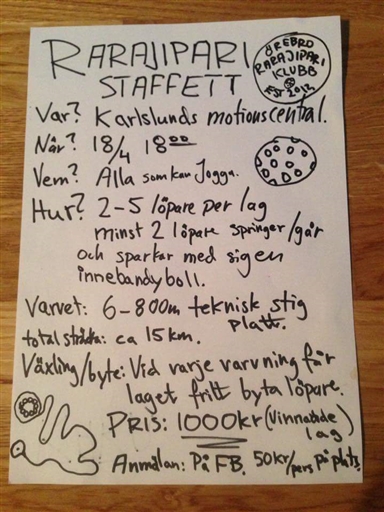 RARAJIPARI
STAFFETT
ÖREBRO
RARAJIPARI
KLUBB
EST 2012
Var? Karlslunds motionscentral.
När? 18/4 18⁰⁰
Vem? Alla som kan Jogga.
Hur? 2-5 löpare per lag
minst 2 löpare springer/går
och sparkar med sig en
innebandyboll.
Varvet: 6-800m teknisk stig
platt.
total sträcka: ca 15km.
Växling/byte: Vid varje varvning får
laget fritt byta löpare.
PRIS: 1000kr (Vinnande
lag)
Anmälan: På FB. 50kr/pers på plats.